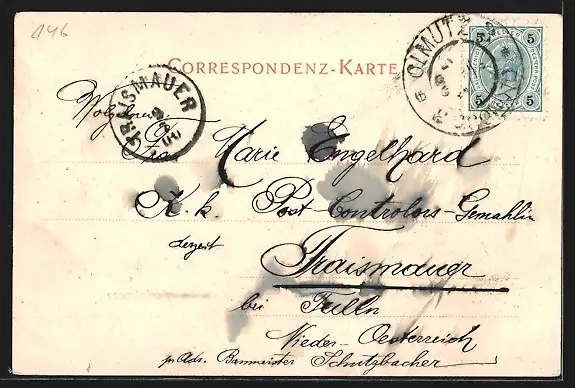 146
CORRESPONDENZ-KARTE
OLMUTZ
5 5
5 5
TRAISMAUER
Wolgeboren
Frau Marie Engelhard
K. k. Post-Controlors-Gemahlin
derzeit
Traismauer
bei Tulln
Nieder-Oesterreich
p. Adr. Baumeister Schutzbacher